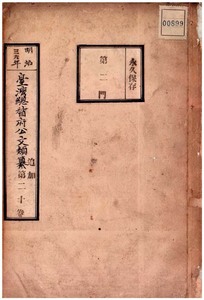 00599
永久保存
第二門
明治
年
臺灣總督府公文類纂
追加
第二十卷